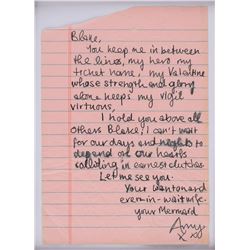 Blake,
You keep me in between
the lines, my hero my
ticket home, my Valentine
whose strength and glory
alone keeps my vigil
virtuous,
I hold you above all
others Blake; I can't wait
for our days and nights to
depend on our hearts
colliding in earnest clutches
Let me see you.
Your wanton and
ever-in-wait wife
your Mermaid
Amy
x x